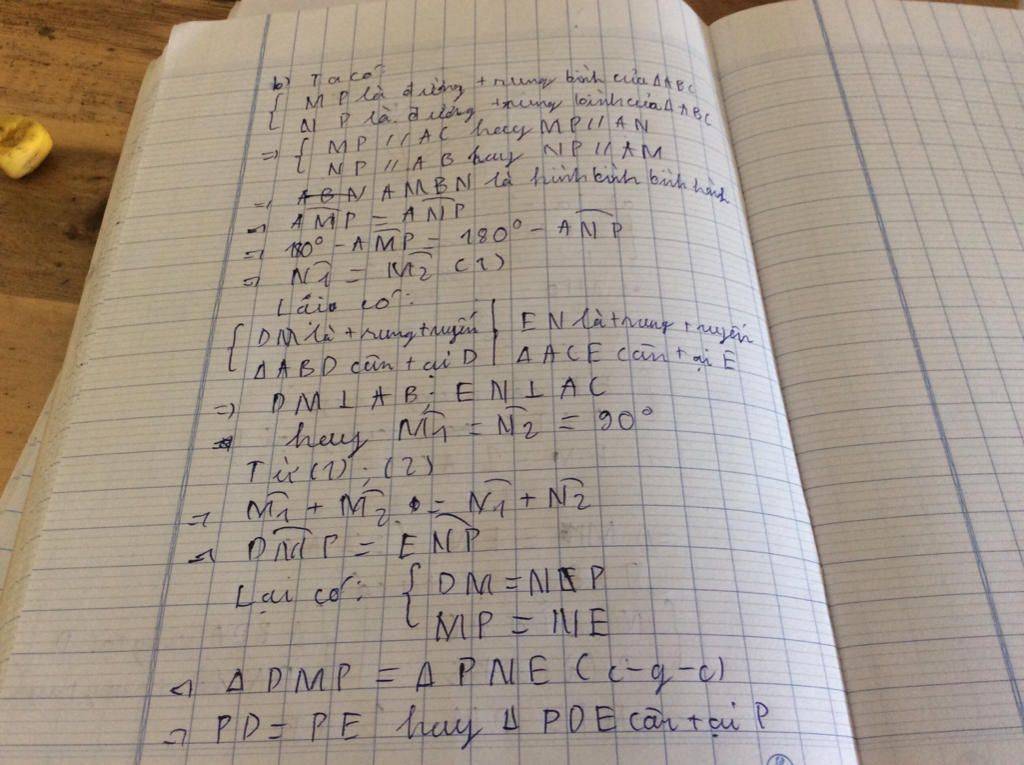 b) Ta có:
{ MP là đường trung bình của ΔABC
NP là đường trung bình của ΔABC
=> { MP // AC hay MP // AN
NP // AB hay NP // AM
=> AMBN là hình bình hành
=> AMP = ANP
=> 180° - AMP = 180° - ANP
=> N1 = M2 (1)
Lại có:
{ DM là trung tuyến | EN là trung tuyến
ΔABD cân tại D | ΔACE cân tại E
=> DM ⊥ AB; EN ⊥ AC
hay M1 = N2 = 90°
Từ (1); (2)
=> M1 + M2 = N1 + N2
=> DMP = ENP
Lại có: { DM = NP
MP = NE
=> ΔDMP = ΔPNE (c-g-c)
=> PD = PE hay Δ PDE cân tại P